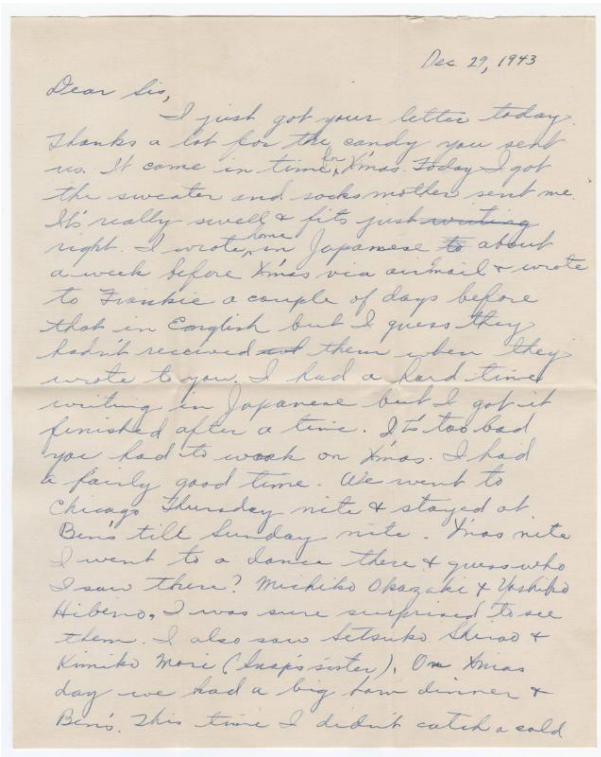 Dec 29, 1943
Dear Sis,
I just got your letter today.
Thanks a lot for the candy you sent
us. It came in time for X'mas. Today I got
the sweater and socks mother sent me.
It's really swell & fits just writing
right. I wrote home in Japanese to about
a week before X'mas via airmail & wrote
to Frankie a couple of days before
that in English but I guess they
hadn't received them when they
wrote to you. I had a hard time
writing in Japanese but I got it
finished after a time. It's too bad
you had to work on Xmas. I had
a fairly good time. We went to
Chicago Thursday nite & stayed at
Ben's till Sunday nite. Xmas nite
I went to a dance there & guess who
I saw there? Michiko Okazaki & Yoshiko
Hibeno, I was sure surprised to see
them. I also saw Setsuko Shirao &
Kimiko Mori (Snap's sister). On Xmas
day we had a big ham dinner &
Ben's. This time I didn't catch a cold